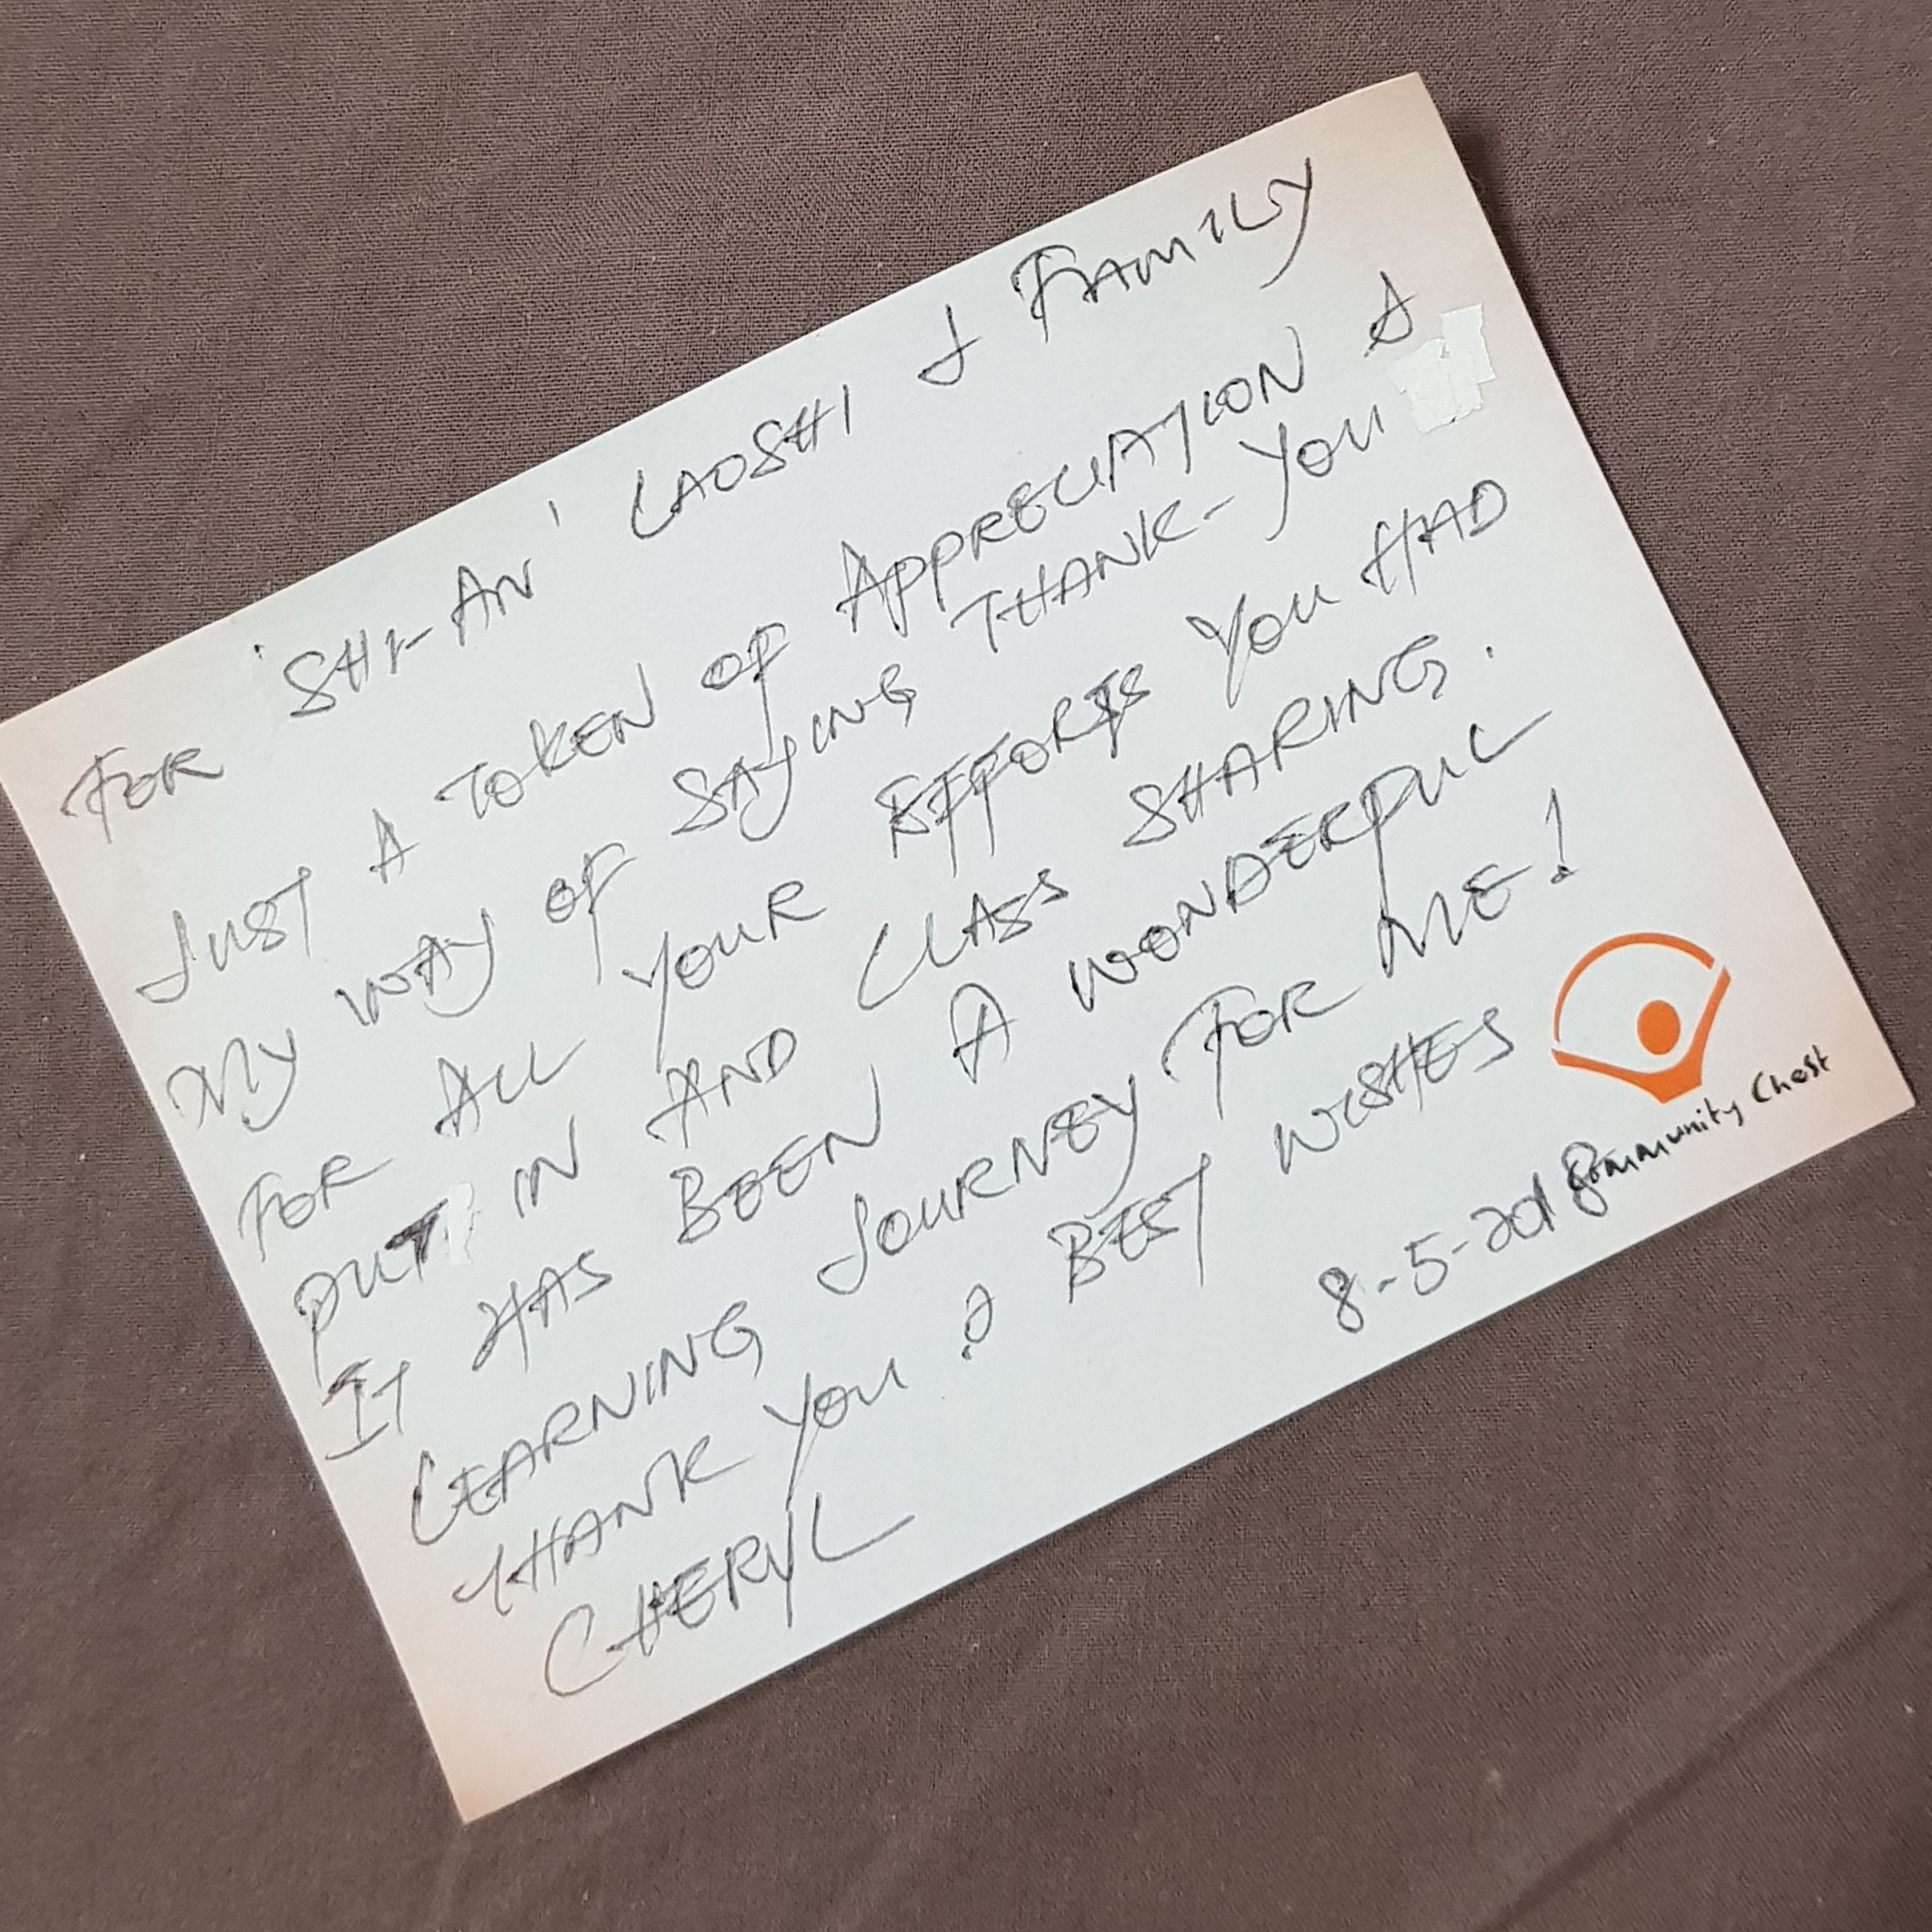 FOR 'SHI-AN' LAOSHI & FAMILY
JUST A TOKEN OF APPRECIATION &
MY WAY OF SAYING THANK-YOU
FOR ALL YOUR EFFORTS YOU HAD
PUT IN AND CLASS SHARING.
IT HAS BEEN A WONDERFUL
LEARNING JOURNEY FOR ME!
THANK YOU & BEST WISHES
CHERYL
8-5-2018
Community Chest